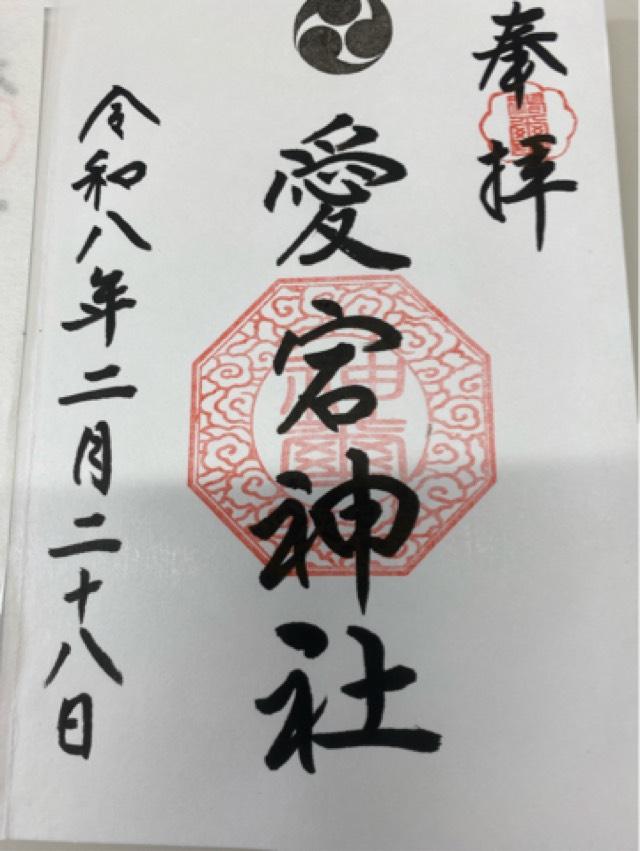 奉拝
愛宕神社
令和八年二月二十八日